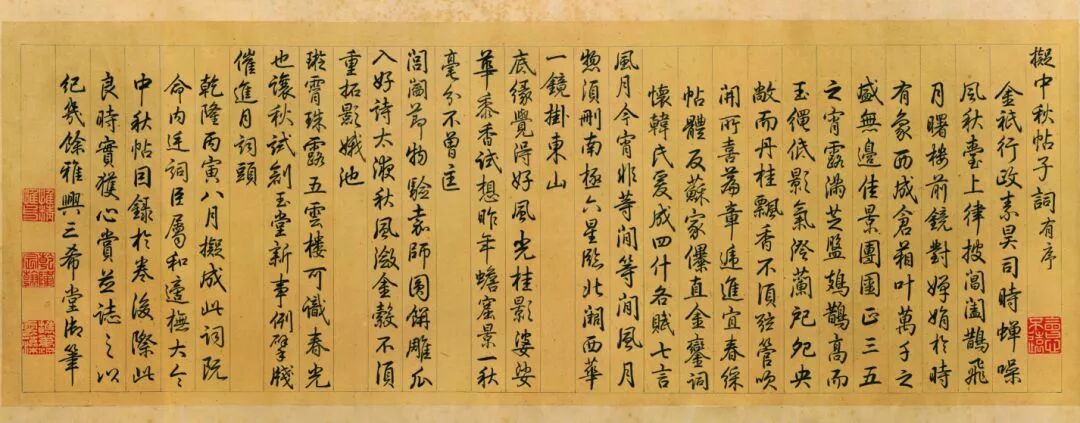 擬中秋帖子詞有序
金祇行政素昊司時蟬噪
風秋臺上律披閶闔鵲飛
月曙樓前鏡對嬋娟於時
有象西成倉箱叶萬千之
盛無邊佳景團圞正三五
之宵露滿芝盤鳷鵲高而
玉繩低影氣泠蘭戺央
敞而丹桂飄香不須弦管吹
開所喜篇章遞進宜春綵
帖體反蘇家儤直金鑾詞
懷韓氏爰成四什各賦七言
風月今宵非等閒等閒風月
惣須刪南極六星臨北闕西華
一鏡掛東山
底緣覺得好風光桂影婆娑
華黍香試想昨年蟾窟景一秋
毫分不曾
閭閻節物驗京師圍餅雕瓜
入好詩太液秋風瀲金縠不須
重拓影娥池
璇霄珠露五雲樓可識春光
也讓秋試剏玉堂新事例擘牋
催進月詞頭
乾隆丙寅八月擬成此詞既
命內廷詞臣屬和邇橅大令
中秋帖因錄於卷後際此
良時實獲心賞並誌之以
紀幾餘雅興三希堂御筆